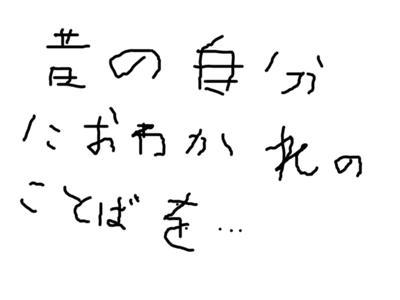 昔の自分
におわかれの
ことばを…